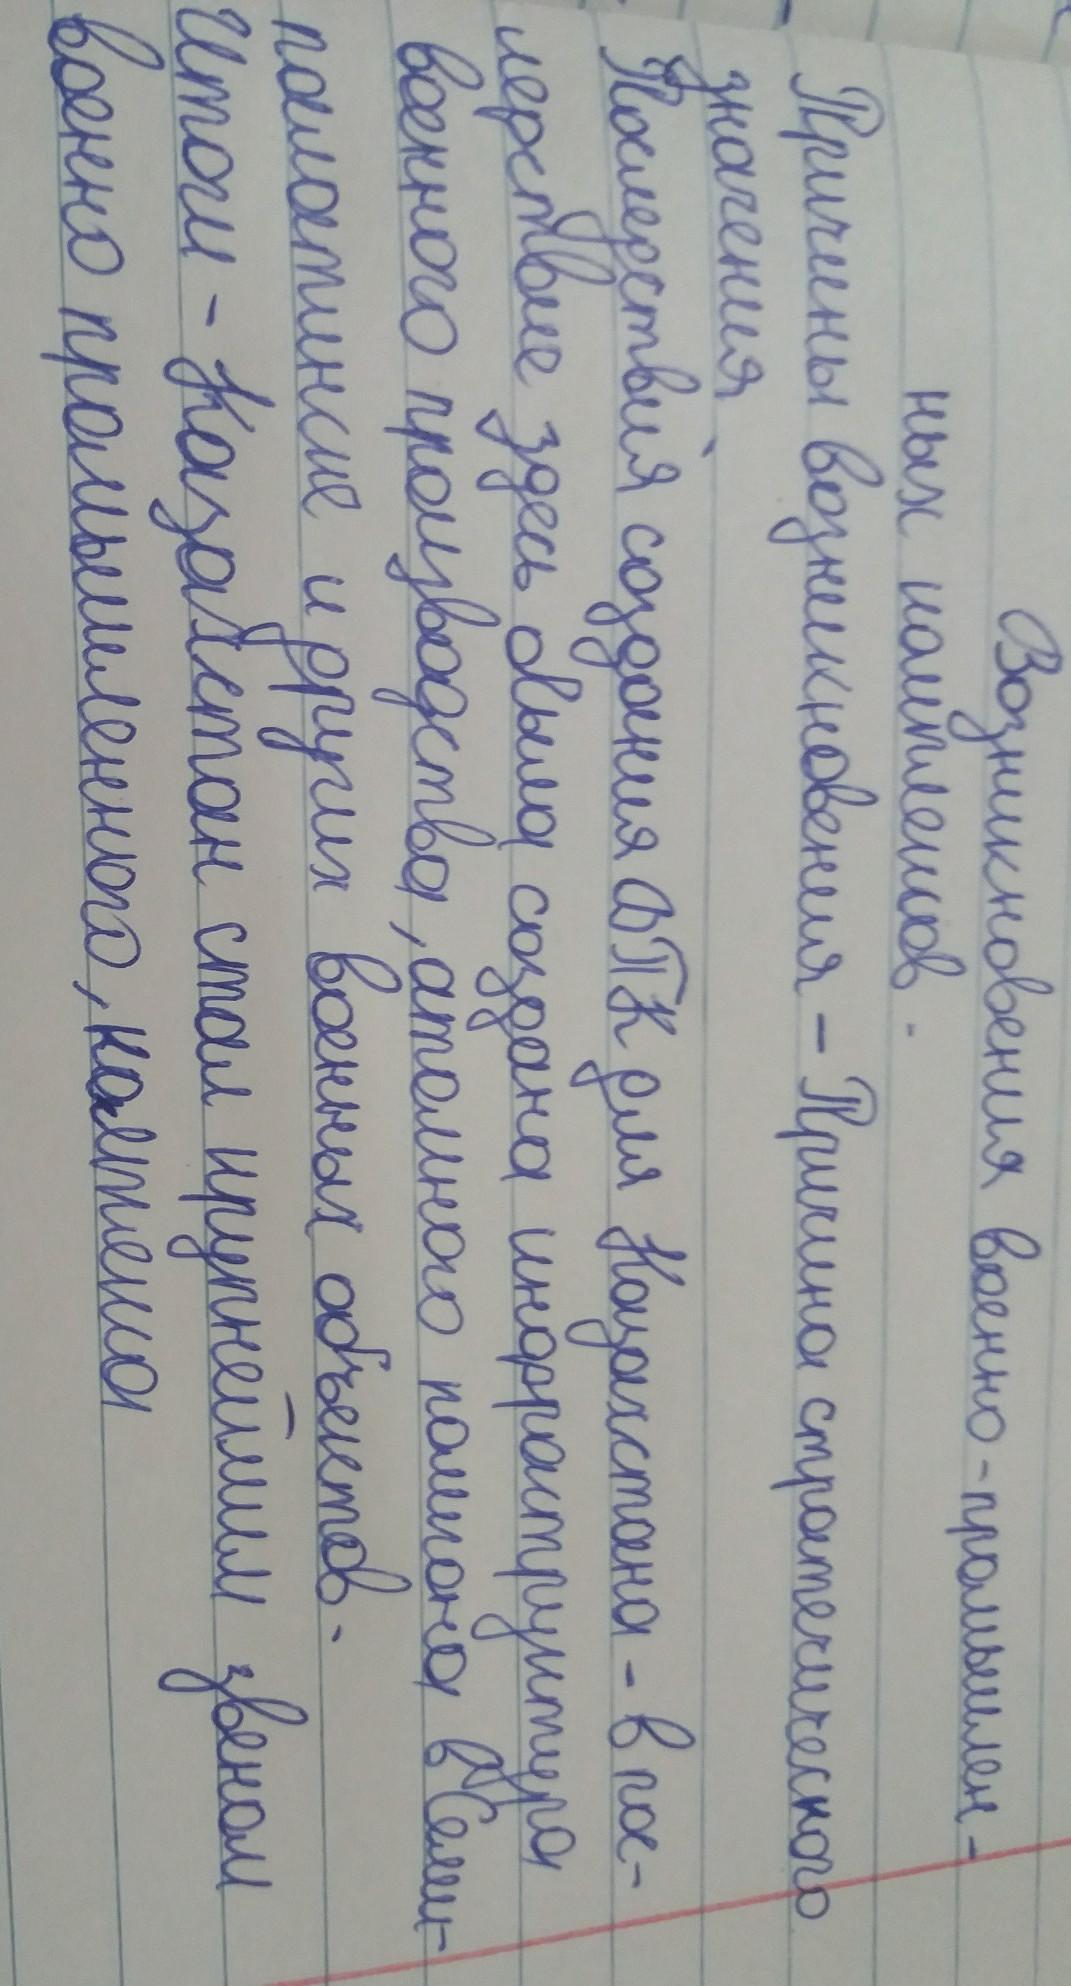 Возникновения военно-промышлен-
ных комплексов.
Причины возникновения - Причина стратегического
значения
Последствия создания ВПК для Казахстана - в пос-
лерствие здесь была создана инфраструктура
военного производства, атомного полигона в Семи-
палатинске и других военных объектов.
Итоги - Казахстан стал крупнейшим звеном
военно промышленного, комплекса